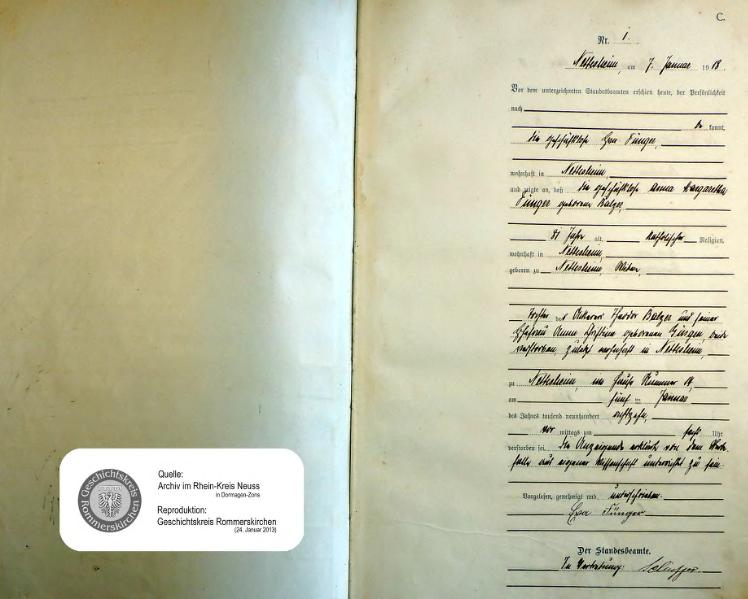 C.
Nr. 1.
Nettesheim, am 7. Januar 1918
Vor dem unterzeichneten Standesbeamten erschien heute, der Persönlichkeit
nach
be kannt,
die geschäftslose Eva Fünger,
wohnhaft in Nettesheim,
und zeigte an, daß die geschäftslose Anna Margaretha
Fünger geborene Balzer,
81 Jahre alt, katholischer Religion,
wohnhaft in Nettesheim,
geboren zu Nettesheim, Witwe,
Tochter des Ackerers Theodor Balzer und seiner
Ehefrau Anna Christina geborenen beide
verstorben, zuletzt wohnhaft in Nettesheim,
zu Nettesheim, im Hause Nummer 14,
am fünf ten Januar
des Jahres tausend neunhundert achtzehn,
vor mittags um Uhr
verstorben sei. Die Anzeigende erklärte von dem Sterb-
falle aus eigener Wissenschaft unterrichtet zu sein.
Vorgelesen, genehmigt und unterschrieben.
Eva Fünger
Der Standesbeamte.
In Vertretung:
Geschichtskreis Rommerskirchen
Quelle:
Archiv im Rhein-Kreis Neuss
in Dormagen-Zons
Reproduktion:
Geschichtskreis Rommerskirchen
(24. Januar 2013)